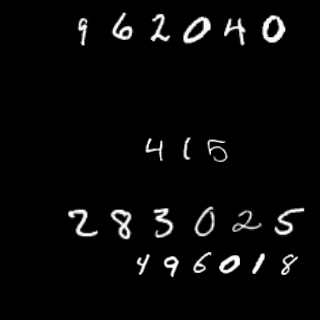 962040
415
283025
496018